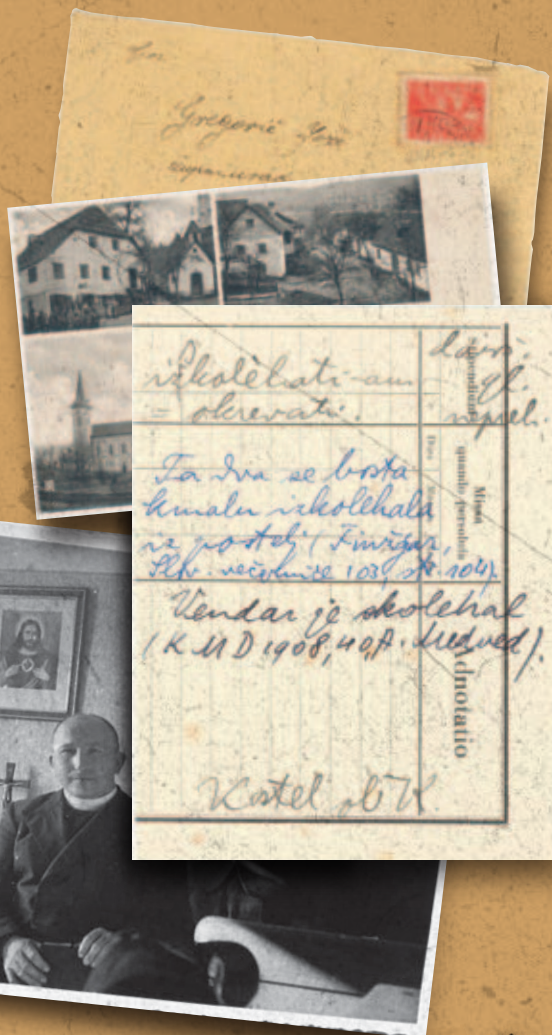 Gregorič
izkolehati -am
okrevati.
dovr.
gl.
nepreh.
Ta dva se bosta
kmalu izkolehala
iz postelj (Finžgar,
Slov. večernice 103, str. 104)
Vendar je skolehal
(KMD 1908, 40, A. Medved).
Kostel
Missa
quando persoluta
Dies
dnotatio